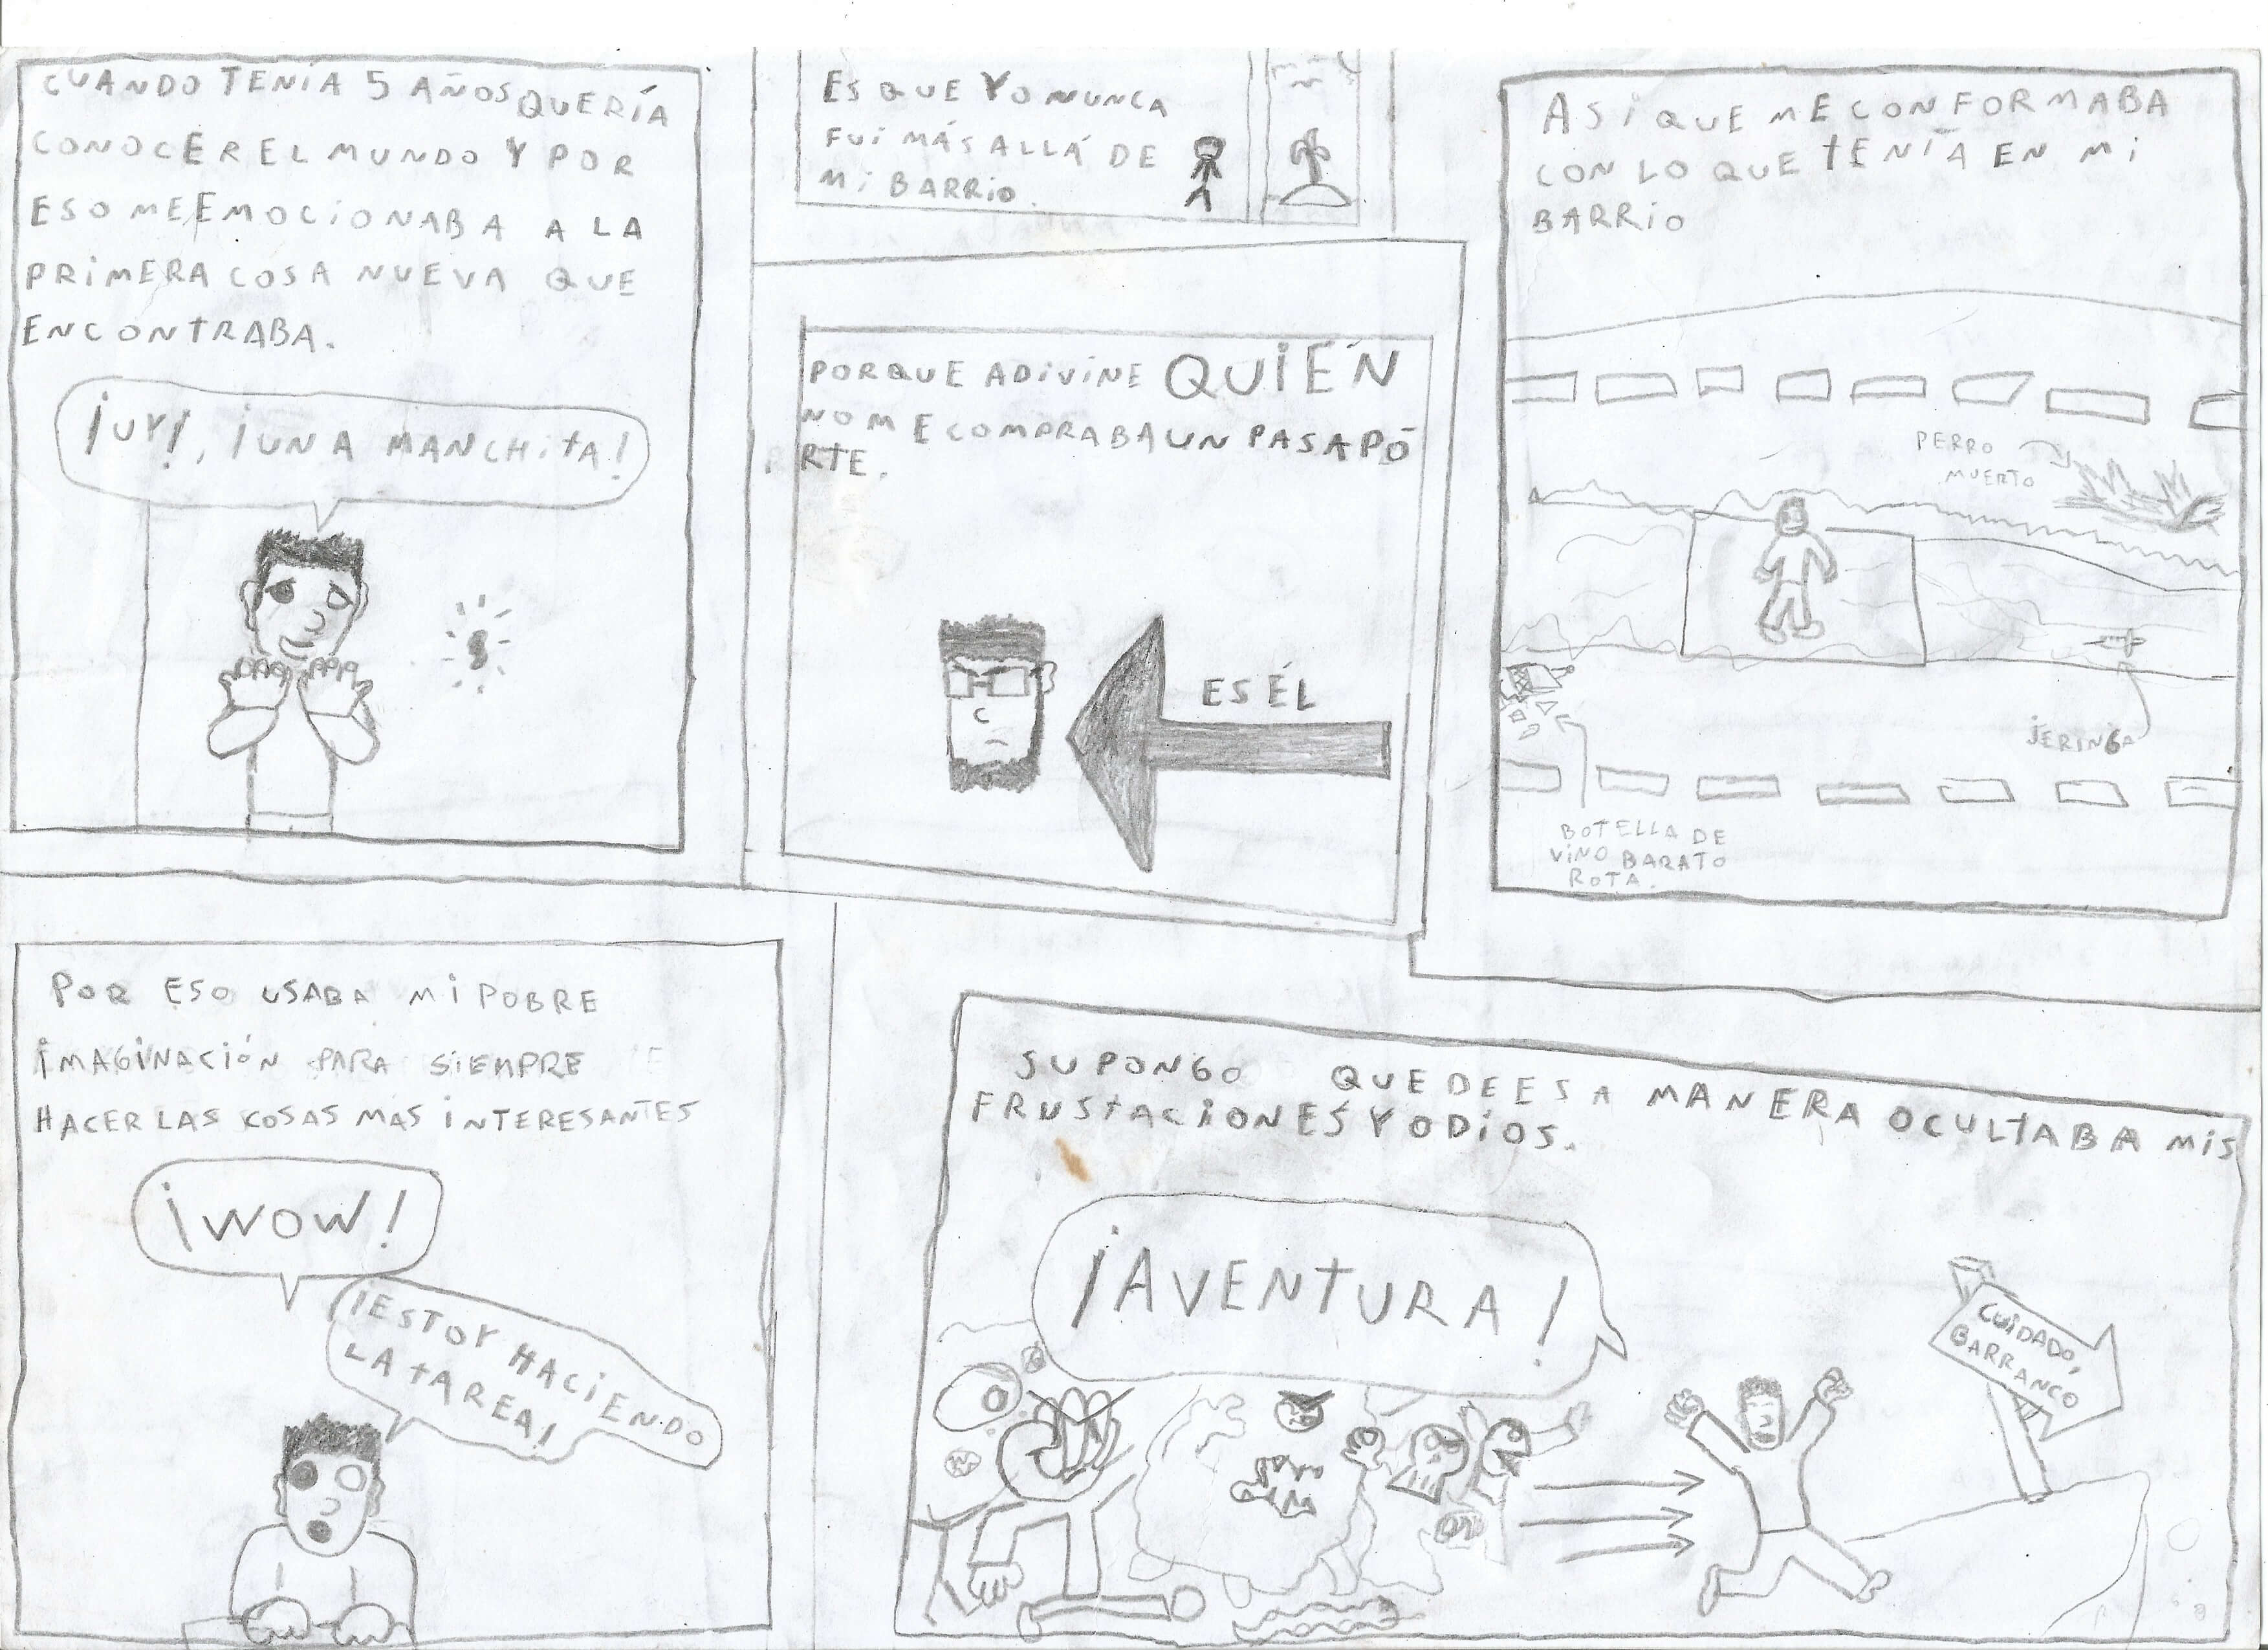 CUANDO TENÍA 5 AÑOS QUERÍA
CONOCER EL MUNDO Y POR
ESO ME EMOCIONABA A LA
PRIMERA COSA NUEVA QUE
ENCONTRABA.
¡UY!, ¡UNA MANCHITA!
ES QUE YO NUNCA
FUI MÁS ALLÁ DE
MI BARRIO.
PORQUE ADIVINE QUIÉN
NO ME COMPRABA UN PASAPÓ
RTE.
ES ÉL
ASI QUE ME CONFORMABA
CON LO QUE TENÍA EN MI
BARRIO
PERRO
MUERTO
JERINGA
BOTELLA DE
VINO BARATO
ROTA.
POR ESO USABA MI POBRE
IMAGINACIÓN PARA SIEMPRE
HACER LAS COSAS MAS INTERESANTES
¡WOW!
¡ESTOY HACIENDO
LA TAREA!
SUPONGO QUE DE ESA MANERA OCULTABA MIS
FRUSTACIONES Y ODIOS.
¡AVENTURA!
CUIDADO,
BARRANCO